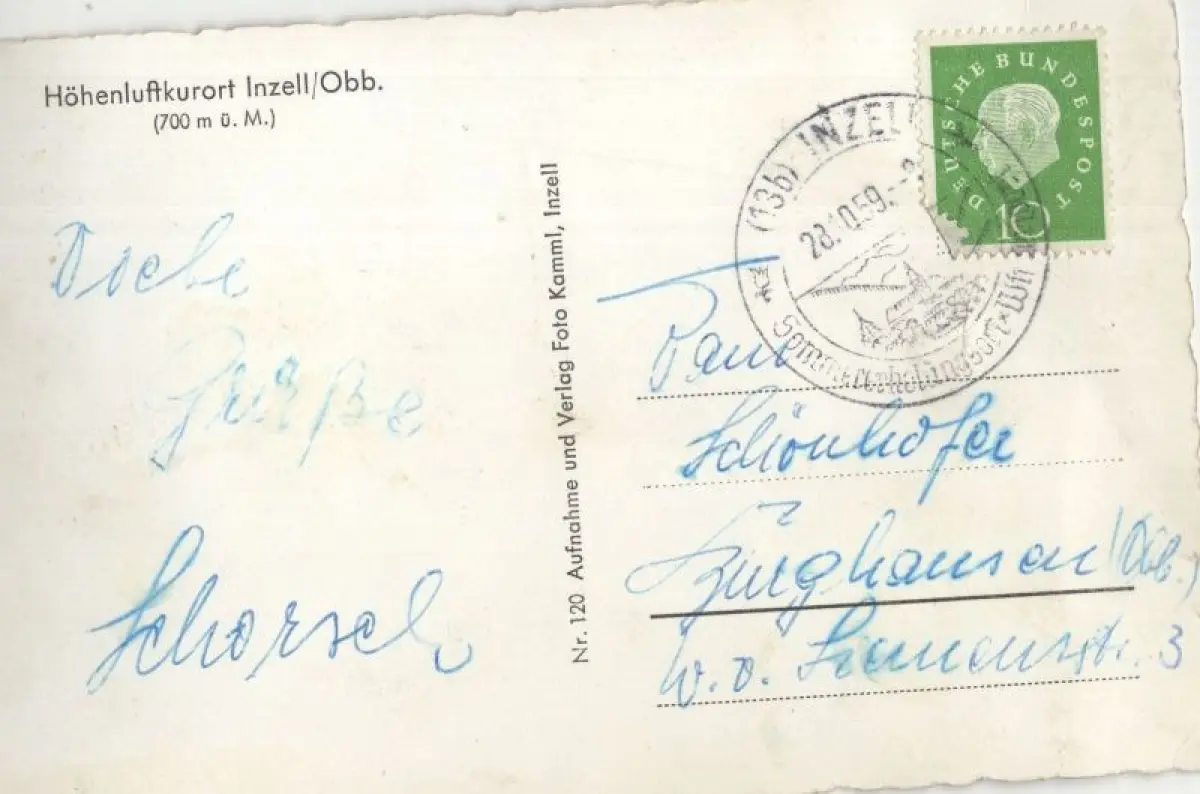 Höhenluftkurort Inzell/Obb.
(700 m ü. M.)
Grüße
Schorsch
Nr. 120 Aufnahme und Verlag Foto Kamml, Inzell
DEUTSCHE BUNDESPOST
10
(13b) INZELL
28.10.59.
Sommererholungsort
Schönhofer
Burghausen/Obb.
W. v. Siemensstr. 3